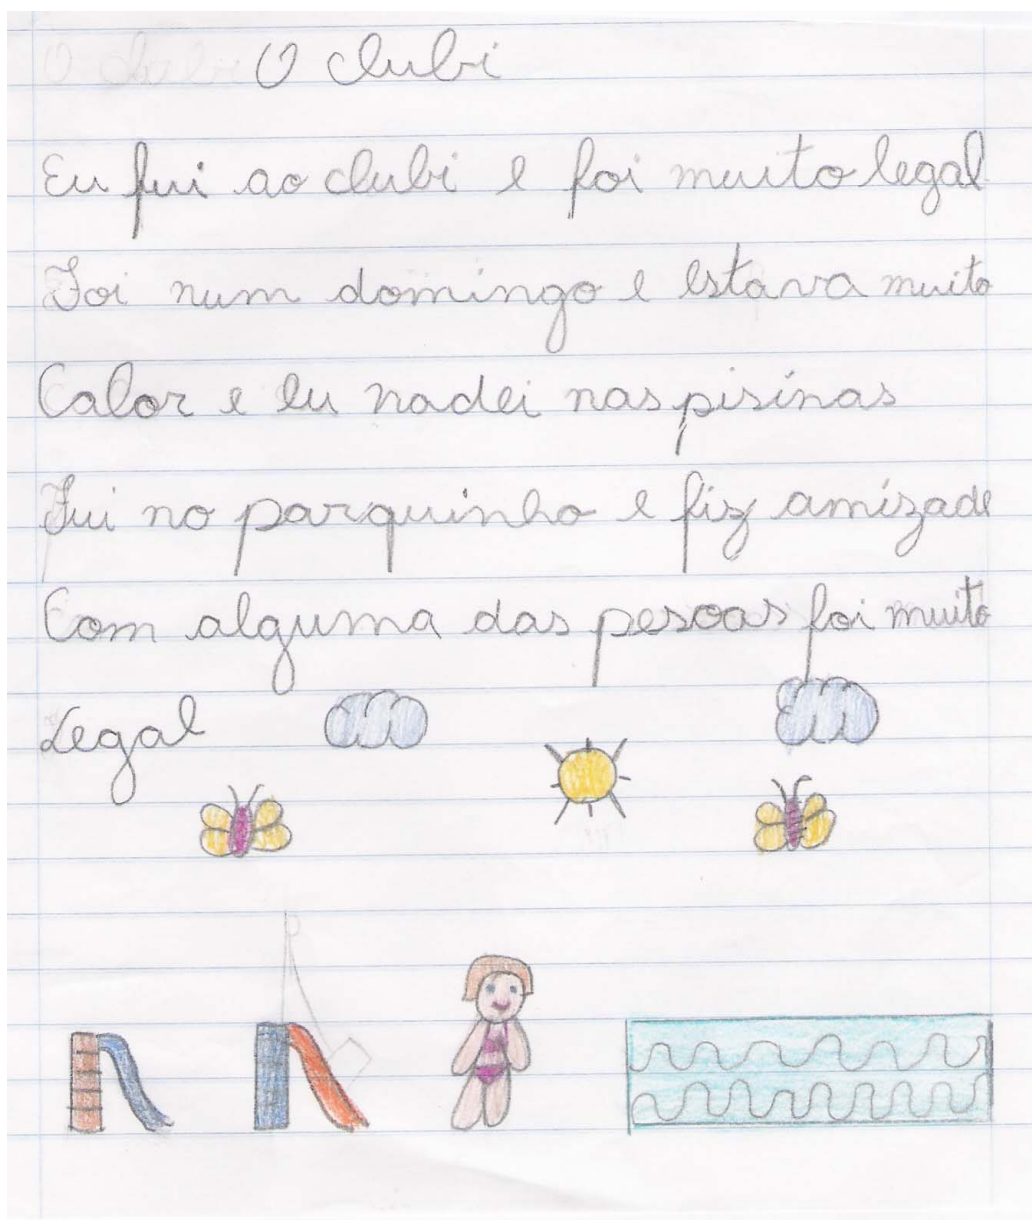 O clubi
Eu fui ao clubi e foi muito legal
Foi num domingo e estava muito
Calor e eu nadei nas pisinas
Fui no parquinho e fiz amizade
Com alguma das pesoas foi muito
Legal